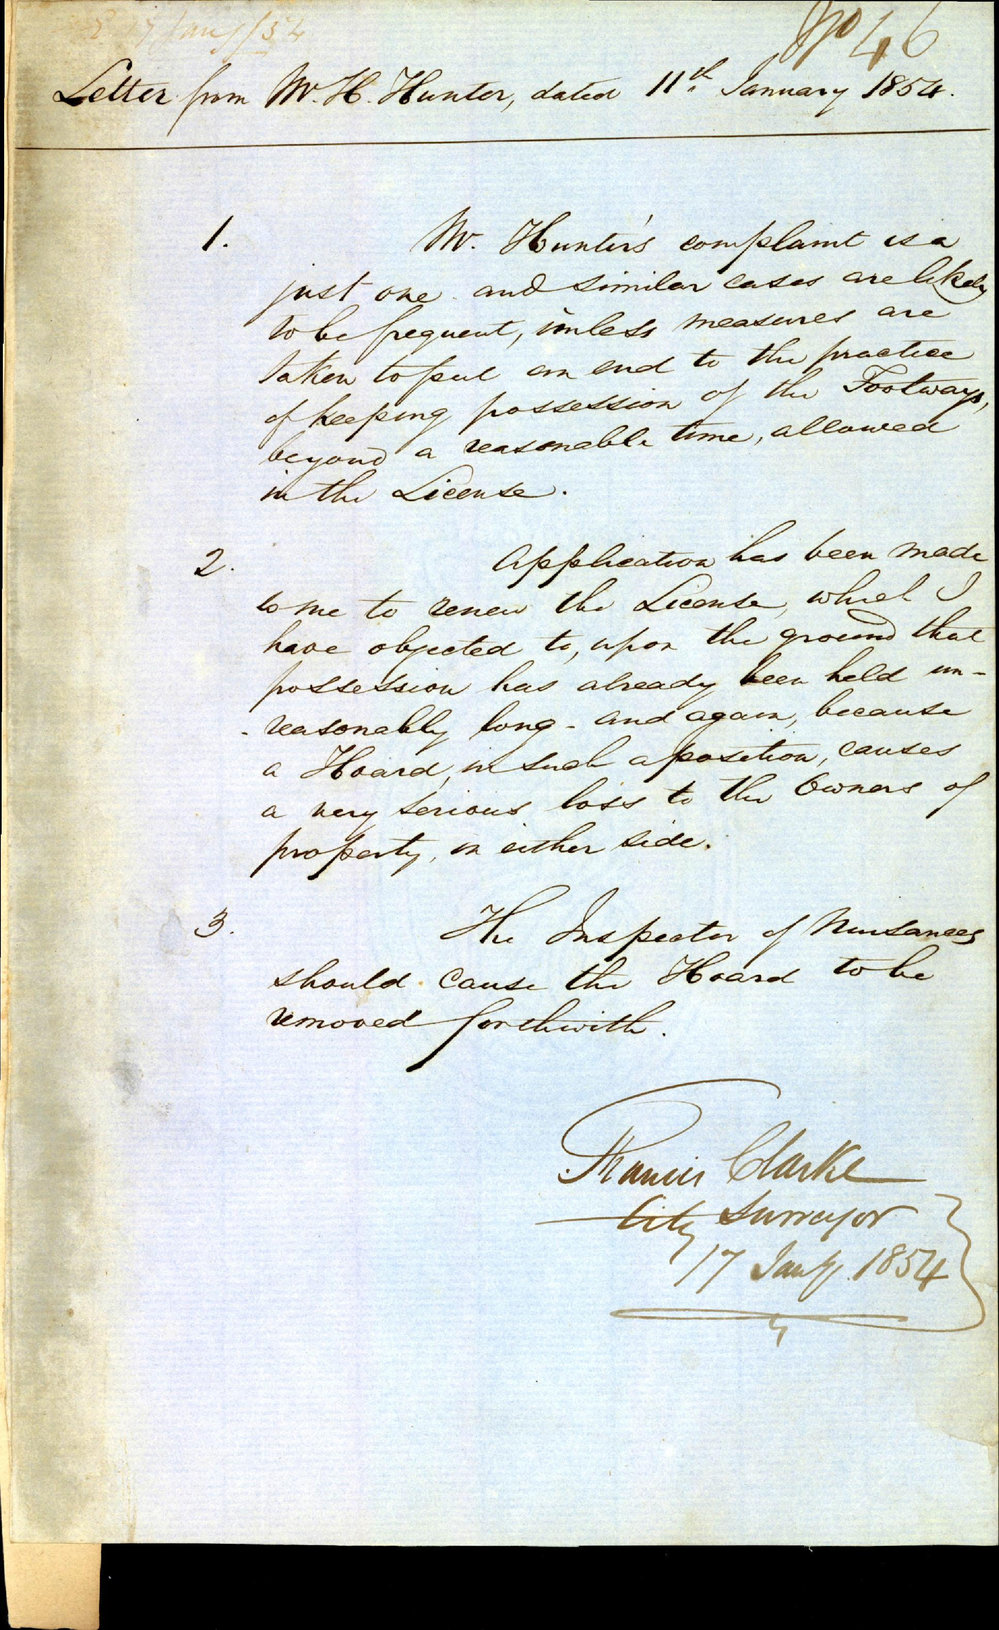 17 Jany/54
No 46
Letter from Mr. H. Hunter, dated 11th January 1854.
1. Mr. Hunter's complaint is a
just one and similar cases are likely
to be frequent, unless measures are
taken to put an end to the practice
of keeping possession of the Footways,
beyond a reasonable time, allowed
in the License.
2. Application has been made
to me to renew the License, which I
have objected to, upon the ground that
possession has already been held un-
-reasonably long - and again, because
a Hoard, in such a position, causes
a very serious loss to the Owners of
property, on either side.
3. The Inspector of Nuisances
should cause the Hoard to be
removed forthwith.
Francis Clarke
City Surveyor
17 Jany. 1854